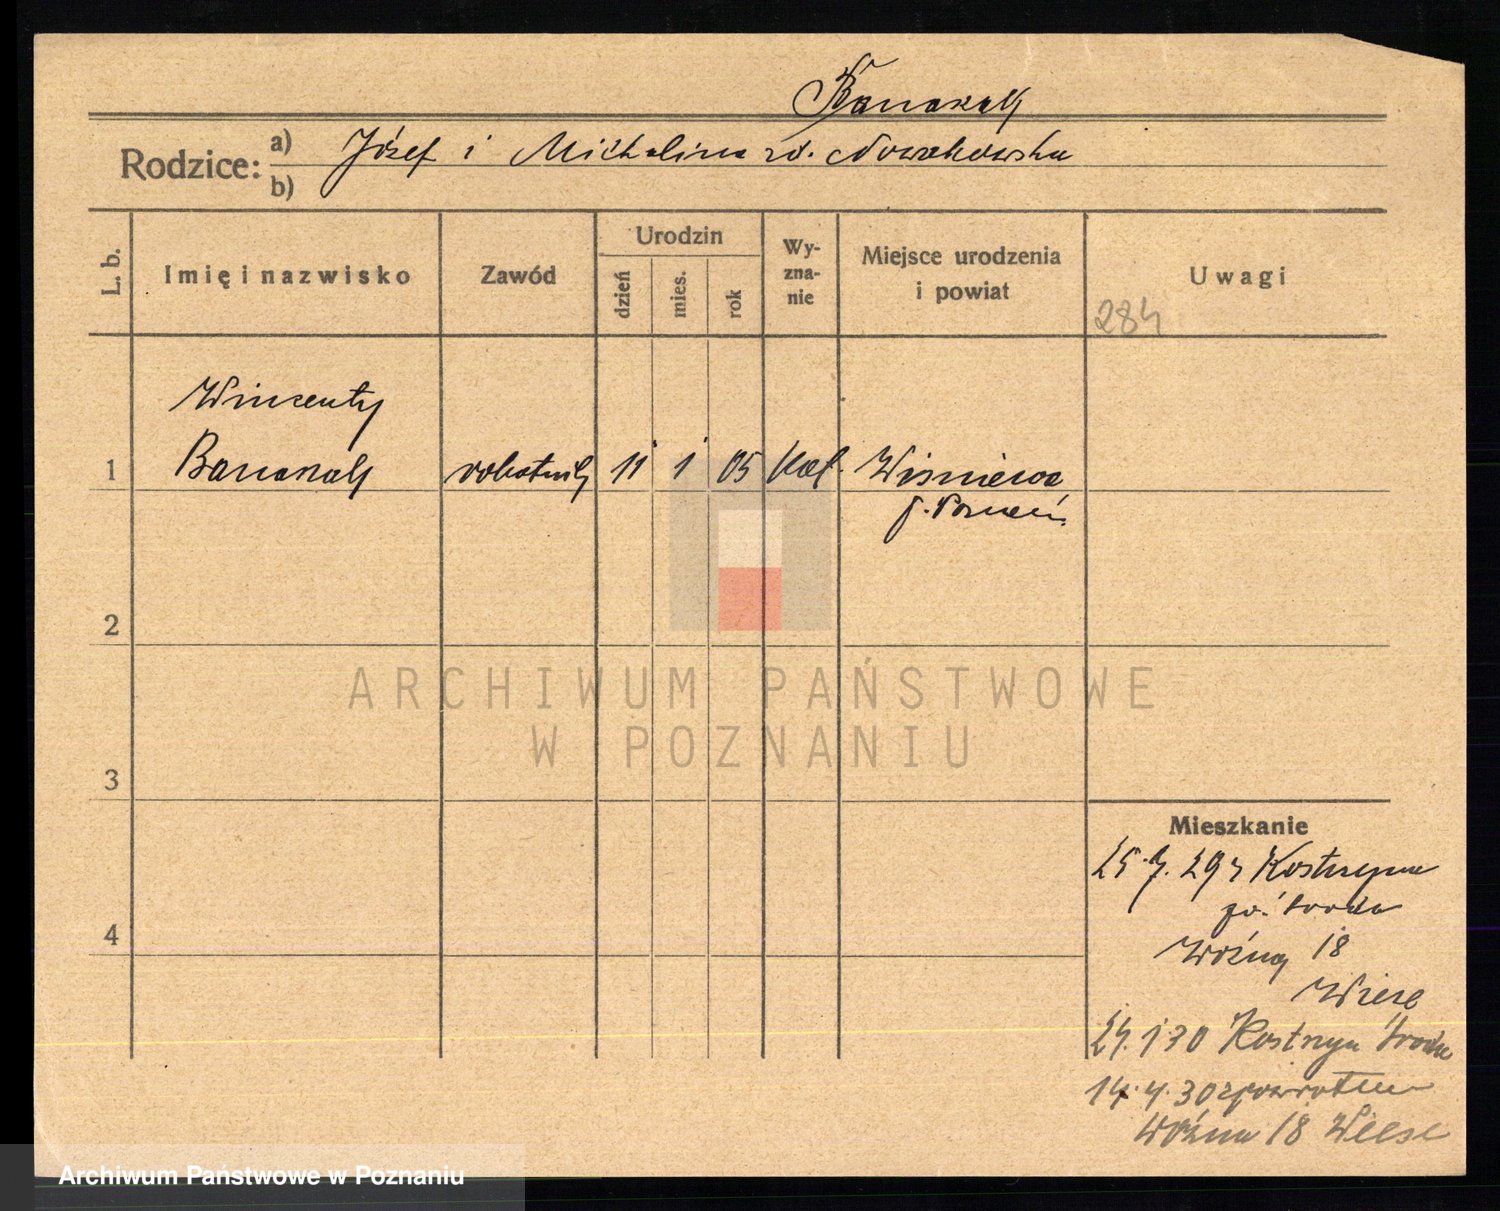 Banaszak
Rodzice: a) Józef i Michalina zd. Nowakowska
b)
L. b.
Imię i nazwisko
Zawód
Urodzin
dzień
mies.
rok
Wy-
zna-
nie
Miejsce urodzenia
i powiat
Uwagi
284
Wincenty
1 Banaszak robotnik 11 1 05 kat. Wiśniewa
p. Poznań
2
3
4
ARCHIWUM PAŃSTWOWE
W POZNANIU
Mieszkanie
25.7.29 z Kostrzyna
pow. Środa
Woźna 18
Wiese
24.1 30 Kostrzyn Środa
14.4.30 zpowrotem
Woźna 18 Wiese
Archiwum Państwowe w Poznaniu